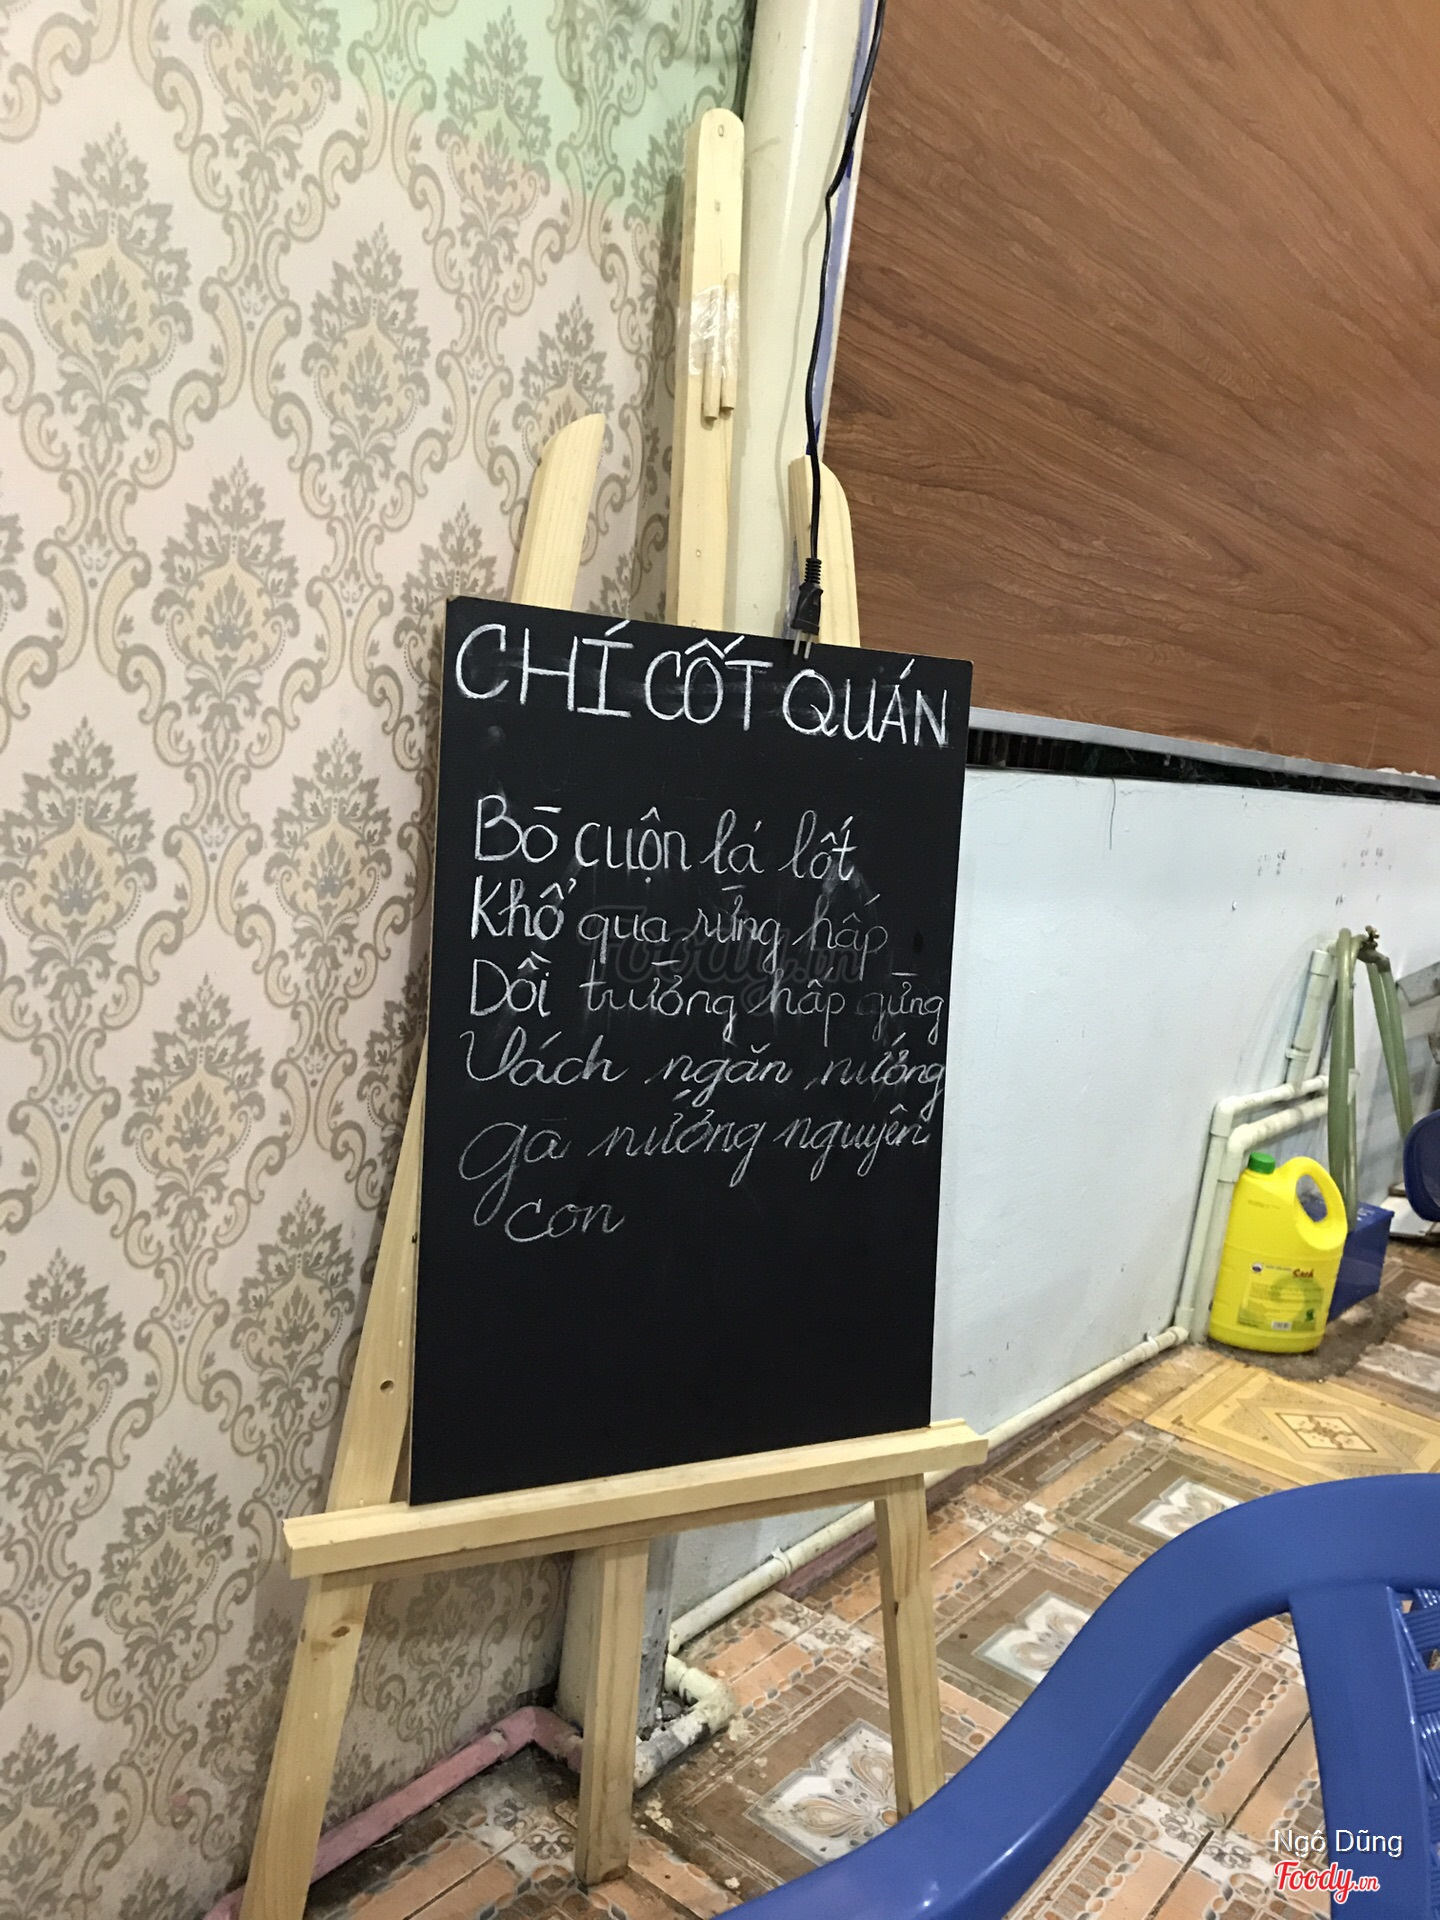 CHÍ CỐT QUÁN
Bò cuộn lá lốt
Khổ qua rừng hấp
Dồi trưởng hấp gừng
Vách ngăn nướng
gà nướng nguyên
con
Foody.vn
Ngô Dũng
Foody.vn